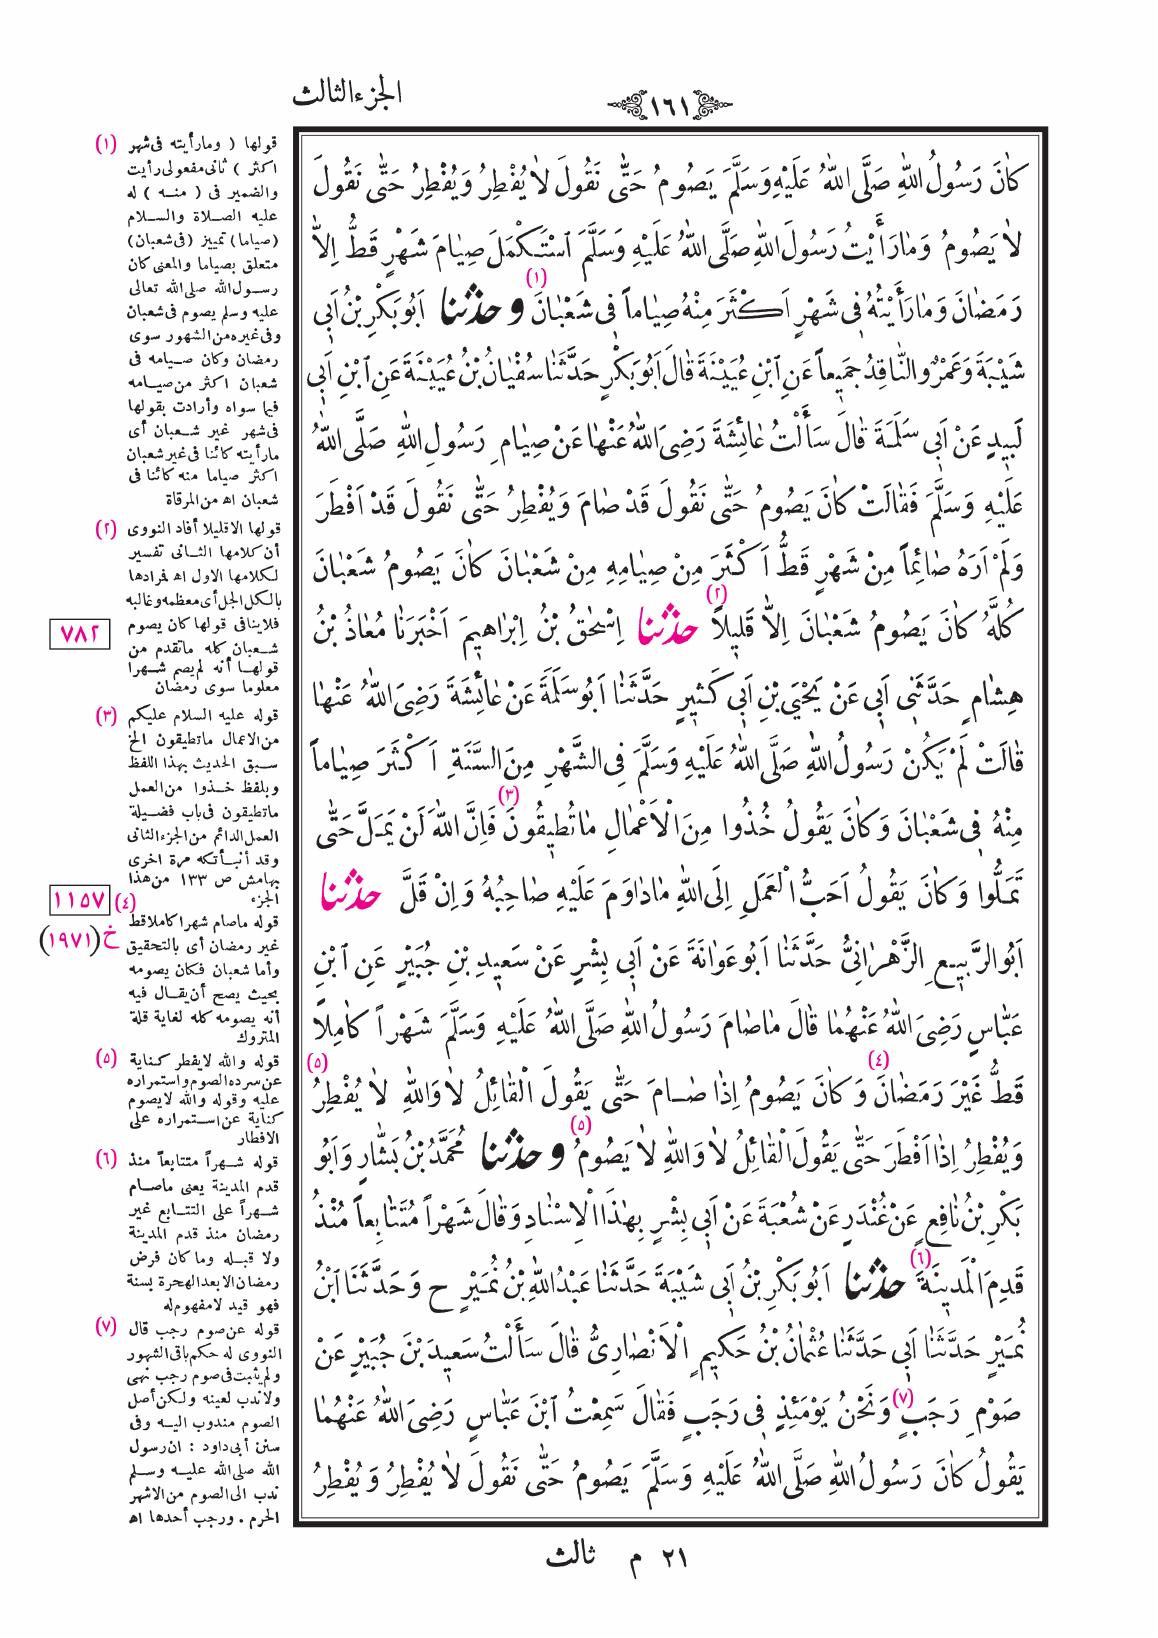 الجزء الثالث
١٦١
كَانَ رَسُولُ اللهِ صَلَّى اللهُ عَلَيْهِ وَسَلَّمَ يَصُومُ حَتَّى نَقُولَ لَا يُفْطِرُ وَيُفْطِرُ حَتَّى نَقُولَ
لَا يَصُومُ وَمَا رَأَيْتُ رَسُولَ اللهِ صَلَّى اللهُ عَلَيْهِ وَسَلَّمَ اسْتَكْمَلَ صِيَامَ شَهْرٍ قَطُّ إِلَّا
رَمَضَانَ وَمَا رَأَيْتُهُ فِى شَهْرٍ اَكْثَرَ مِنْهُ صِيَاماً فِى شَعْبَانَ (١) وحدثنا اَبُو بَكْرِ بْنُ اَبِى
شَيْبَةَ وَعَمْرٌو النَّاقِدُ جَمِيعاً عَنِ ابْنِ عُيَيْنَةَ قَالَ اَبُو بَكْرٍ حَدَّثَنَا سُفْيَانُ بْنُ عُيَيْنَةَ عَنِ ابْنِ اَبِى
لَبِيدٍ عَنْ اَبِى سَلَمَةَ قَالَ سَأَلْتُ عَائِشَةَ رَضِىَ اللهُ عَنْهَا عَنْ صِيَامِ رَسُولِ اللهِ صَلَّى اللهُ
عَلَيْهِ وَسَلَّمَ فَقَالَتْ كَانَ يَصُومُ حَتَّى نَقُولَ قَدْ صَامَ وَيُفْطِرُ حَتَّى نَقُولَ قَدْ اَفْطَرَ
وَلَمْ اَرَهُ صَائِماً مِنْ شَهْرٍ قَطُّ اَكْثَرَ مِنْ صِيَامِهِ مِنْ شَعْبَانَ كَانَ يَصُومُ شَعْبَانَ
كُلَّهُ كَانَ يَصُومُ شَعْبَانَ اِلَّا قَلِيلاً (٢) حدثنا اِسْحٰقُ بْنُ اِبْرَاهِيمَ اَخْبَرَنَا مُعَاذُ بْنُ
هِشَامٍ حَدَّثَنِى اَبِى عَنْ يَحْيَى بْنِ اَبِى كَثِيرٍ حَدَّثَنَا اَبُو سَلَمَةَ عَنْ عَائِشَةَ رَضِىَ اللهُ عَنْهَا
قَالَتْ لَمْ يَكُنْ رَسُولُ اللهِ صَلَّى اللهُ عَلَيْهِ وَسَلَّمَ فِى الشَّهْرِ مِنَ السَّنَةِ اَكْثَرَ صِيَاماً
مِنْهُ فِى شَعْبَانَ وَكَانَ يَقُولُ خُذُوا مِنَ الْاَعْمَالِ مَا تُطِيقُونَ (٣) فَاِنَّ اللهَ لَنْ يَمَلَّ حَتَّى
تَمَلُّوا وَكَانَ يَقُولُ اَحَبُّ الْعَمَلِ اِلَى اللهِ مَا دَاوَمَ عَلَيْهِ صَاحِبُهُ وَاِنْ قَلَّ حدثنا
اَبُو الرَّبِيعِ الزَّهْرَانِىُّ حَدَّثَنَا اَبُو عَوَانَةَ عَنْ اَبِى بِشْرٍ عَنْ سَعِيدِ بْنِ جُبَيْرٍ عَنِ ابْنِ
عَبَّاسٍ رَضِىَ اللهُ عَنْهُمَا قَالَ مَا صَامَ رَسُولُ اللهِ صَلَّى اللهُ عَلَيْهِ وَسَلَّمَ شَهْراً كَامِلاً
قَطُّ غَيْرَ رَمَضَانَ (٤) وَكَانَ يَصُومُ اِذَا صَامَ حَتَّى يَقُولَ الْقَائِلُ لَا وَاللهِ لَا يُفْطِرُ (٥)
وَيُفْطِرُ اِذَا اَفْطَرَ حَتَّى يَقُولَ الْقَائِلُ لَا وَاللهِ لَا يَصُومُ (٥) وحدثنا مُحَمَّدُ بْنُ بَشَّارٍ وَاَبُو
بَكْرِ بْنُ نَافِعٍ عَنْ غُنْدَرٍ عَنْ شُعْبَةَ عَنْ اَبِى بِشْرٍ بِهٰذَا الْاِسْنَادِ وَقَالَ شَهْراً مُتَتَابِعاً مُنْذُ
قَدِمَ الْمَدِينَةَ (٦) حدثنا اَبُو بَكْرِ بْنُ اَبِى شَيْبَةَ حَدَّثَنَا عَبْدُ اللهِ بْنُ نُمَيْرٍ ح وَحَدَّثَنَا ابْنُ
نُمَيْرٍ حَدَّثَنَا اَبِى حَدَّثَنَا عُثْمَانُ بْنُ حَكِيمٍ الْاَنْصَارِىُّ قَالَ سَأَلْتُ سَعِيدَ بْنَ جُبَيْرٍ عَنْ
صَوْمِ رَجَبٍ (٧) وَنَحْنُ يَوْمَئِذٍ فِى رَجَبٍ فَقَالَ سَمِعْتُ ابْنَ عَبَّاسٍ رَضِىَ اللهُ عَنْهُمَا
يَقُولُ كَانَ رَسُولُ اللهِ صَلَّى اللهُ عَلَيْهِ وَسَلَّمَ يَصُومُ حَتَّى نَقُولَ لَا يُفْطِرُ وَيُفْطِرُ
(١) قولها ( ومارأيته فى شهر
اكثر ) ثانى مفعولى رأيت
والضمير فى ( منه ) له
عليه الصلاة والسلام
(صياما) تمييز (فى شعبان)
متعلق بصياما والمعنى كان
رسول الله صلى الله تعالى
عليه وسلم يصوم فى شعبان
وفى غيره من الشهور سوى
رمضان وكان صيامه فى
شعبان اكثر من صيامه
فيما سواه وأرادت بقولها
فى شهر غير شعبان أى
مارأيته كائنا فى غير شعبان
اكثر صياما منه كائنا فى
شعبان اه من المرقاة
(٢) قولها الا قليلا أفاد النووى
أن كلامها الثانى تفسير
لكلامها الاول اه فرادها
بالكل الجل أى معظمه وغالبه
فلاينافى قولها كان يصوم
شعبان كله ماتقدم من
قولها أنه لم يصم شهرا
معلوما سوى رمضان
٧٨٢
(٣) قوله عليه السلام عليكم
من الاعمال ماتطيقون الخ
سبق الحديث بهذا اللفظ
وبلفظ خذوا من العمل
ماتطيقون فى باب فضيلة
العمل الدائم من الجزء الثانى
وقد أنبأتكه مرة اخرى
بهامش ص ١٣٣ من هذا
الجزء
١١٥٧
خ (١٩٧١)
(٤) قوله ماصام شهرا كاملا قط
غير رمضان أى بالتحقيق
وأما شعبان فكان يصومه
بحيث يصح أن يقال فيه
أنه يصومه كله لغاية قلة
المتروك
(٥) قوله والله لايفطر كناية
عن سرده الصوم واستمراره
عليه وقوله والله لايصوم
كناية عن استمراره على
الافطار
(٦) قوله شهراً متتابعاً منذ
قدم المدينة يعنى ماصام
شهراً على التتابع غير
رمضان منذ قدم المدينة
ولا قبله وما كان فرض
رمضان الا بعد الهجرة بسنة
فهو قيد لامفهوم له
(٧) قوله عن صوم رجب قال
النووى له حكم باقى الشهور
ولم يثبت فى صوم رجب نهى
ولا ندب لعينه ولكن أصل
الصوم مندوب اليه وفى
سنن أبى داود : ان رسول
الله صلى الله عليه وسلم
ندب الى الصوم من الاشهر
الحرم . ورجب أحدها اه
٢١ م ثالث